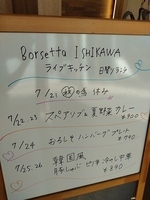 Borsetta ISHIKAWA
ライブキッチン 日替ランチ
7/21 の 休み
7/22.23 スペアリブと夏野菜カレー
¥900
7/24 おろしそハンバーグプレート
¥790
7/25.26 韓国風
冷やし中華
¥890